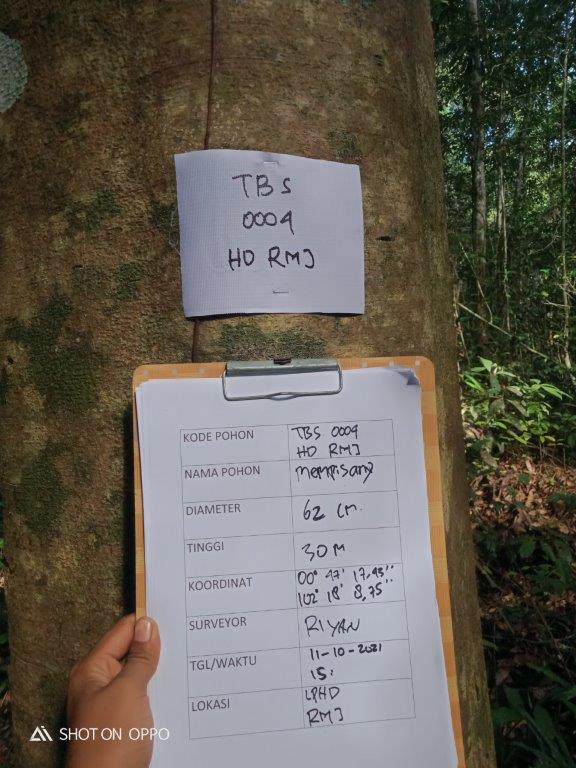 TBS
0004
HD RMJ
KODE POHON TBS 0004
HD RMJ
NAMA POHON Mempisang
DIAMETER 62 cm.
TINGGI 30 M
KOORDINAT 00° 47' 17,43''
102° 18' 8,75''
SURVEYOR RIYAN
TGL/WAKTU 11-10-2021
15:
LOKASI LPHD
RMJ
SHOT ON OPPO